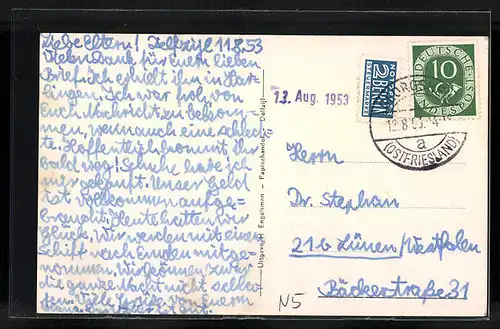 Liebe Eltern! Delfzijl 11.8.53
Vielen Dank für Euern lieben
Brief. Ich erhielt ihn in Har-
lingen. Ich war froh, von
Euch Nachricht zu bekom-
men, wenn auch eine schlech-
te. Hoffentlich kommt ihr
bald weg! Schuhe habe ich
mir gekauft. Unser Geld
ist vollkommen aufge-
braucht. Heute hatten wir
Glück. Wir werden mit einem
Schiff nach Emden mitge-
nommen. Wir können zwar
die ganze Nacht nicht schla-
fen. Viele Grüße von Euern
Uitgave: H. Engelsman - Papierhandel - Delfzijl
13. Aug. 1953
NOTOPFER
2 BERLIN
STEUERMARKE
DEUTSCHE
10
BUNDESPOST
13.8.53
a
(OSTFRIESLAND)
Herrn
Dr. Stephan
21b Lünen/Westfalen
Bäckerstraße 31
N5